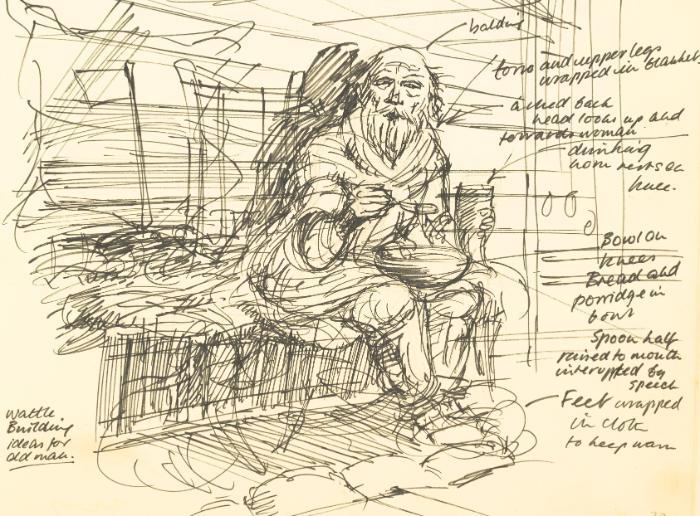 balding
torso and upper legs
wrapped in blanket
arched back
head looks up and
towards woman
drinking
horn rests on
knee.
Bowl on
knees
Bread and
porridge in
bowl
Spoon half
raised to mouth
interupted by
speech
Feet wrapped
in cloth
to keep warm
Wattle
Building
ideas for
old man.